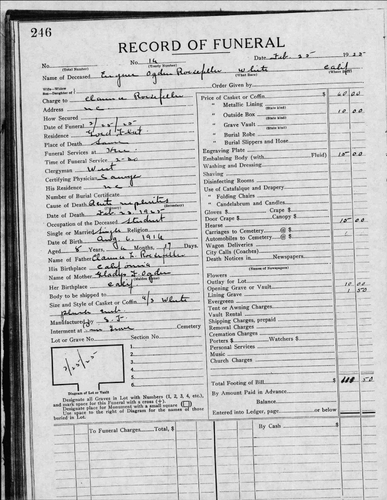 246
RECORD OF FUNERAL
No. No. 14 Date Feb 25 1925
(Total Number) (Yearly Number)
Name of Deceased Eugene Ogden White Calif
(What Race) (Where Born)
Charge to Clarence
Address N.C.
How Secured
Date of Funeral 2/25/25
Residence
Place of Death Same
Funeral Services at
Time of Funeral Service 2:30
Clergyman West
Certifying Physician Sawyer
His Residence N.C.
Number of Burial Certificate
Cause of Death Acute nephritis
Date of Death Feb 23 1925
Occupation of the Deceased Student
Single or Married Single Religion
Date of Birth Aug 6, 1916
Aged 8 Years 6 Months 17 Days
Name of Father Clarence
His Birthplace California
Name of Mother Gladys F Ogden
Her Birthplace Calif
Body to be shipped to
Size and Style of Casket or Coffin 4/9 White
plush
Manufactured by S.F.
Interment at Cemetery
Lot or Grave No. Section No.
2/25/25
Diagram of Lot or Vault
Designate all Graves in Lot with Numbers (1, 2, 3, 4, etc.),
and mark space for this Funeral with a cross (+).
Designate place for Monument with a small square
Use space to the right of Diagram for the names of those
buried in Lot.
Order Given by
Price of Casket or Coffin 60 00
" Metallic Lining
(State Kind)
" Outside Box 10 00
(State Kind)
" Grave Vault
(State Kind)
" Burial Robe
" Burial Slippers and Hose
Engraving Plate
Embalming Body (with Fluid) 15 00
Washing and Dressing
Shaving
Disinfecting Rooms
Use of Catafalque and Drapery
" Folding Chairs
" Candelabrum and Candles
Gloves $ Crape $
Door Crape $ Canopy $
Hearse 15 00
Carriages to Cemetery @ $
Automobiles to Cemetery @ $
Wagon Deliveries
City Calls (Coaches)
Death Notices in Newspapers
(Names of Newspapers)
Flowers
Outlay for Lot 10 00
Opening Grave or Vault 1 50
Lining Grave
Evergreen
Tent or Awning Charges
Vault Rental
Shipping Charges, prepaid
Removal Charges
Cremation Charges
Porters $ Watchers $
Personal Services
Music
Church Charges
Total Footing of Bill 50
By Amount Paid in Advance
Balance
Entered into Ledger, page or below
To Funeral Charges Total, $ By Cash $